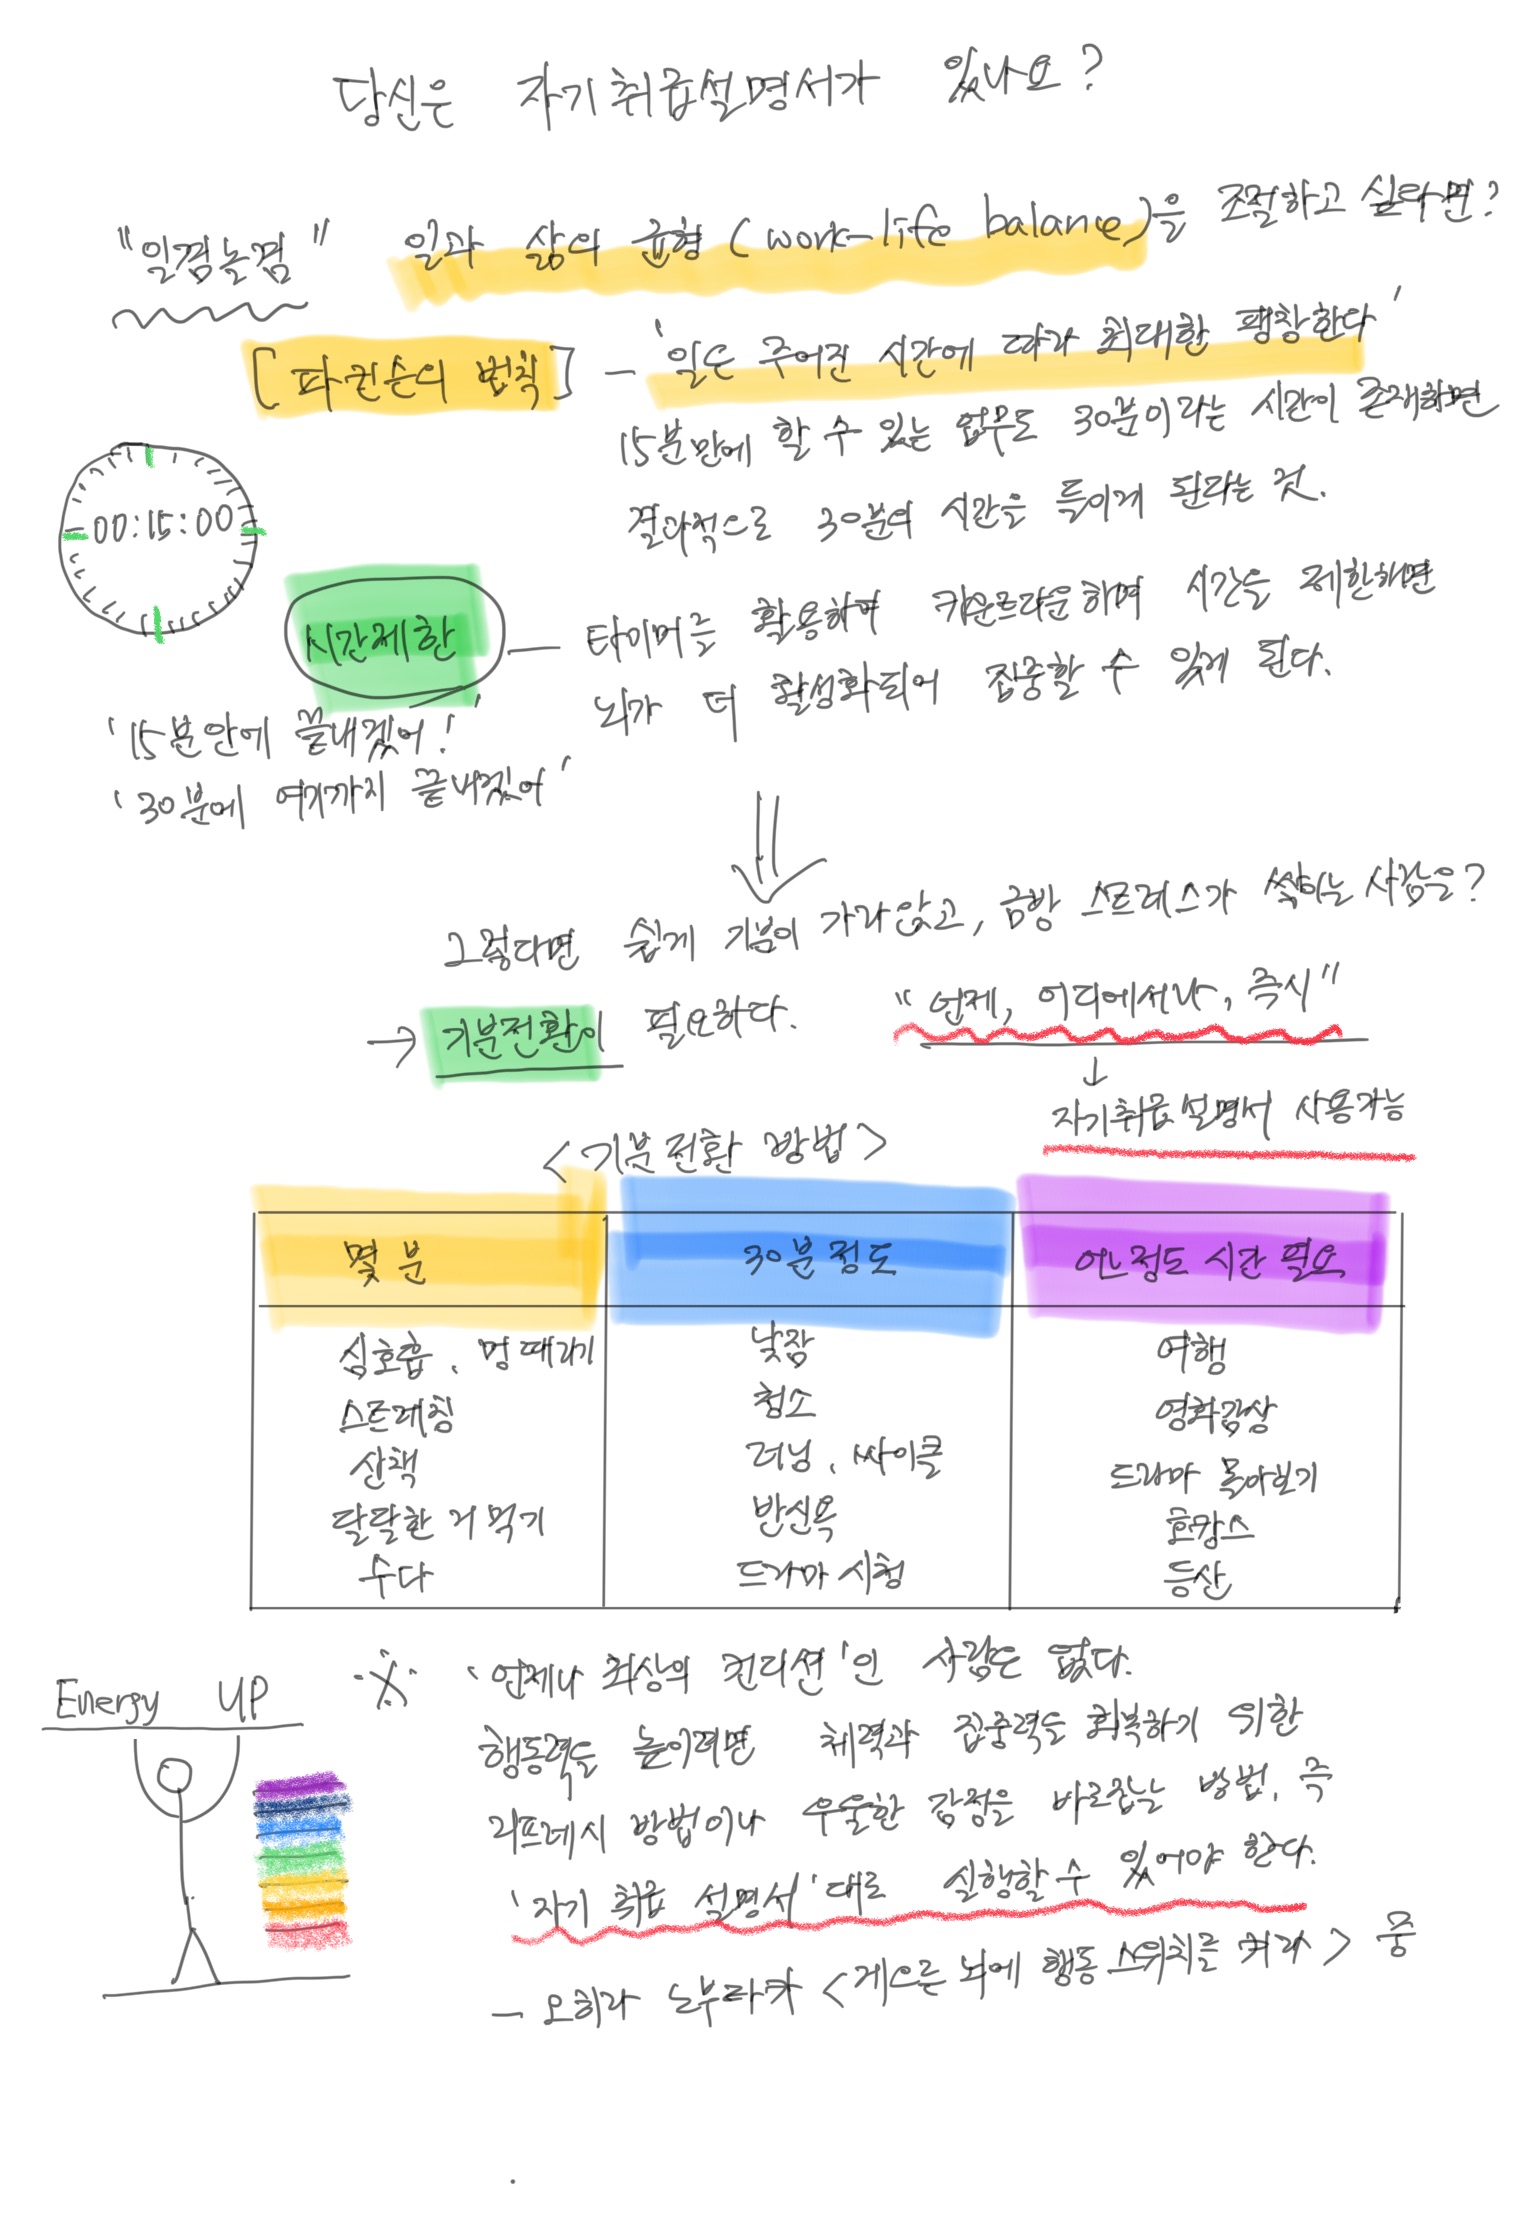 당신은 자기취급설명서가 있나요?
"일껌놀껌" 일과 삶의 균형(work-life balance)을 조절하고 싶다면?
[파킨슨의 법칙] - '일은 주어진 시간에 따라 최대한 팽창한다'
15분만에 할 수 있는 업무도 30분이라는 시간이 존재하면
결과적으로 30분의 시간을 들이게 된다는 것.
00:15:00
시간제한 - 타이머를 활용하여 카운트다운하며 시간을 제한하면
뇌가 더 활성화되어 집중할 수 있게 된다.
'15분안에 끝내겠어!'
'30분에 여기까지 끝내겠어'
그렇다면 쉽게 기분이 가라앉고, 금방 스트레스가 쌓이는 사람은?
→ 기분전환이 필요하다. "언제, 어디에서나, 즉시"
↓
자기취급설명서 사용가능
<기분전환 방법>
몇 분 30분정도 어느정도 시간 필요
심호흡, 멍때리기 낮잠 여행
스트레칭 청소 영화감상
산책 러닝, 싸이클 드라마 몰아보기
달달한 거 먹기 반신욕 호캉스
수다 드라마 시청 등산
Energy UP
※ '언제나 최상의 컨디션'인 사람은 없다.
행동력을 높이려면 체력과 집중력을 회복하기 위한
리프레시 방법이나 우울한 감정을 바로잡는 방법, 즉
'자기 취급 설명서'대로 실행할 수 있어야 한다.
- 오히라 노부타카 <게으른 뇌에 행동 스위치를 켜라> 중